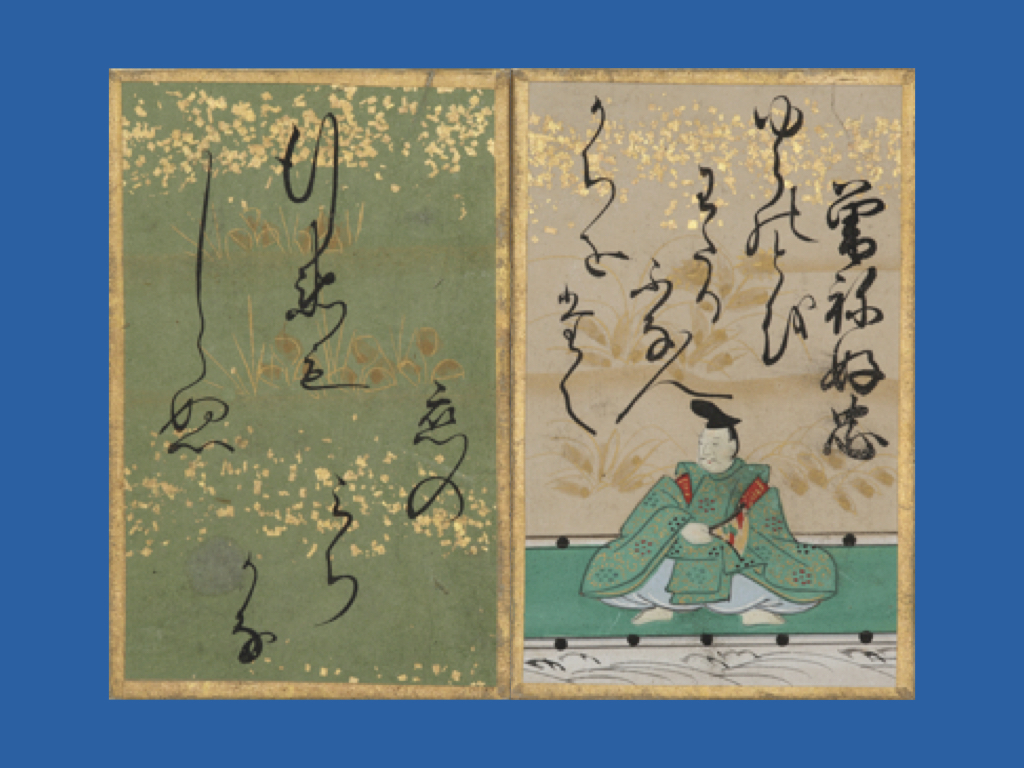 曾祢好忠
ゆらのとを
わたる
ふな人
かちを
たえ
行衛も
しらぬ
恋の
みち
かな